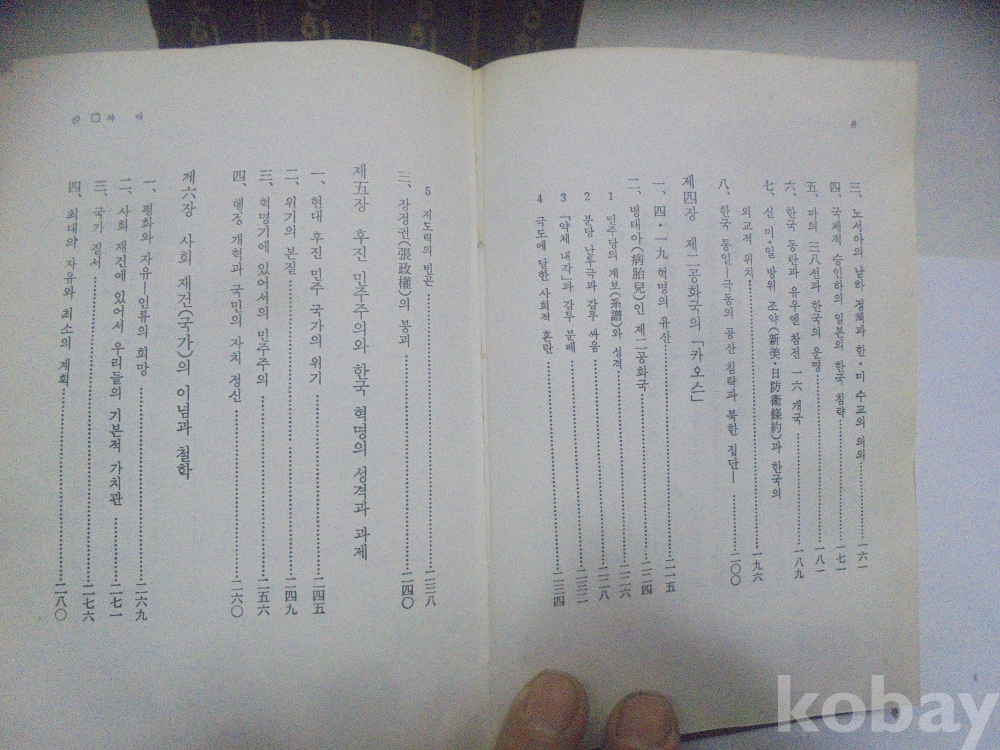 8
三、 노서아의 남하 정책과 한·미 수교의 의의………一六一
四、 국제적 승인하의 일본의 한국 침략………一七一
五、 마의 三八선과 한국의 운명………一八一
六、 한국 동란과 유우엔 참전 一六 개국………一八九
七、 신 미·일 방위 조약(新美·日防衛條約)과 한국의
외교적 위치………一九六
八、 한국 통일—극동의 공산 침략과 북한 집단—………二〇〇
제四장 제二공화국의 「카오스」
一、 四·一九 혁명의 유산………二一五
二、 병태아(病胎兒)인 제二공화국………二二四
1 민주당의 계보(系譜)와 성격………二二六
2 분당 난투극과 감투 싸움………二二八
3 「약체 내각」과 감투 분배………二三二
4 극도에 달한 사회적 혼란………二三四
5 지도력의 빈곤………二三八
三、 장정권(張政權)의 붕괴………二四〇
제五장 후진 민주주의와 한국 혁명의 성격과 과제
一、 현대 후진 민주 국가의 위기………二四五
二、 위기의 본질………二四九
三、 혁명기에 있어서의 민주주의………二五六
四、 행정 개혁과 국민의 자치 정신………二六〇
제六장 사회 재건(국가)의 이념과 철학
一、 평화와 자유—인류의 희망………二六九
二、 사회 재건에 있어서 우리들의 기본적 가치관………二七一
三、 국가 질서………二七六
四、 최대의 자유와 최소의 계획………二八〇
kobay